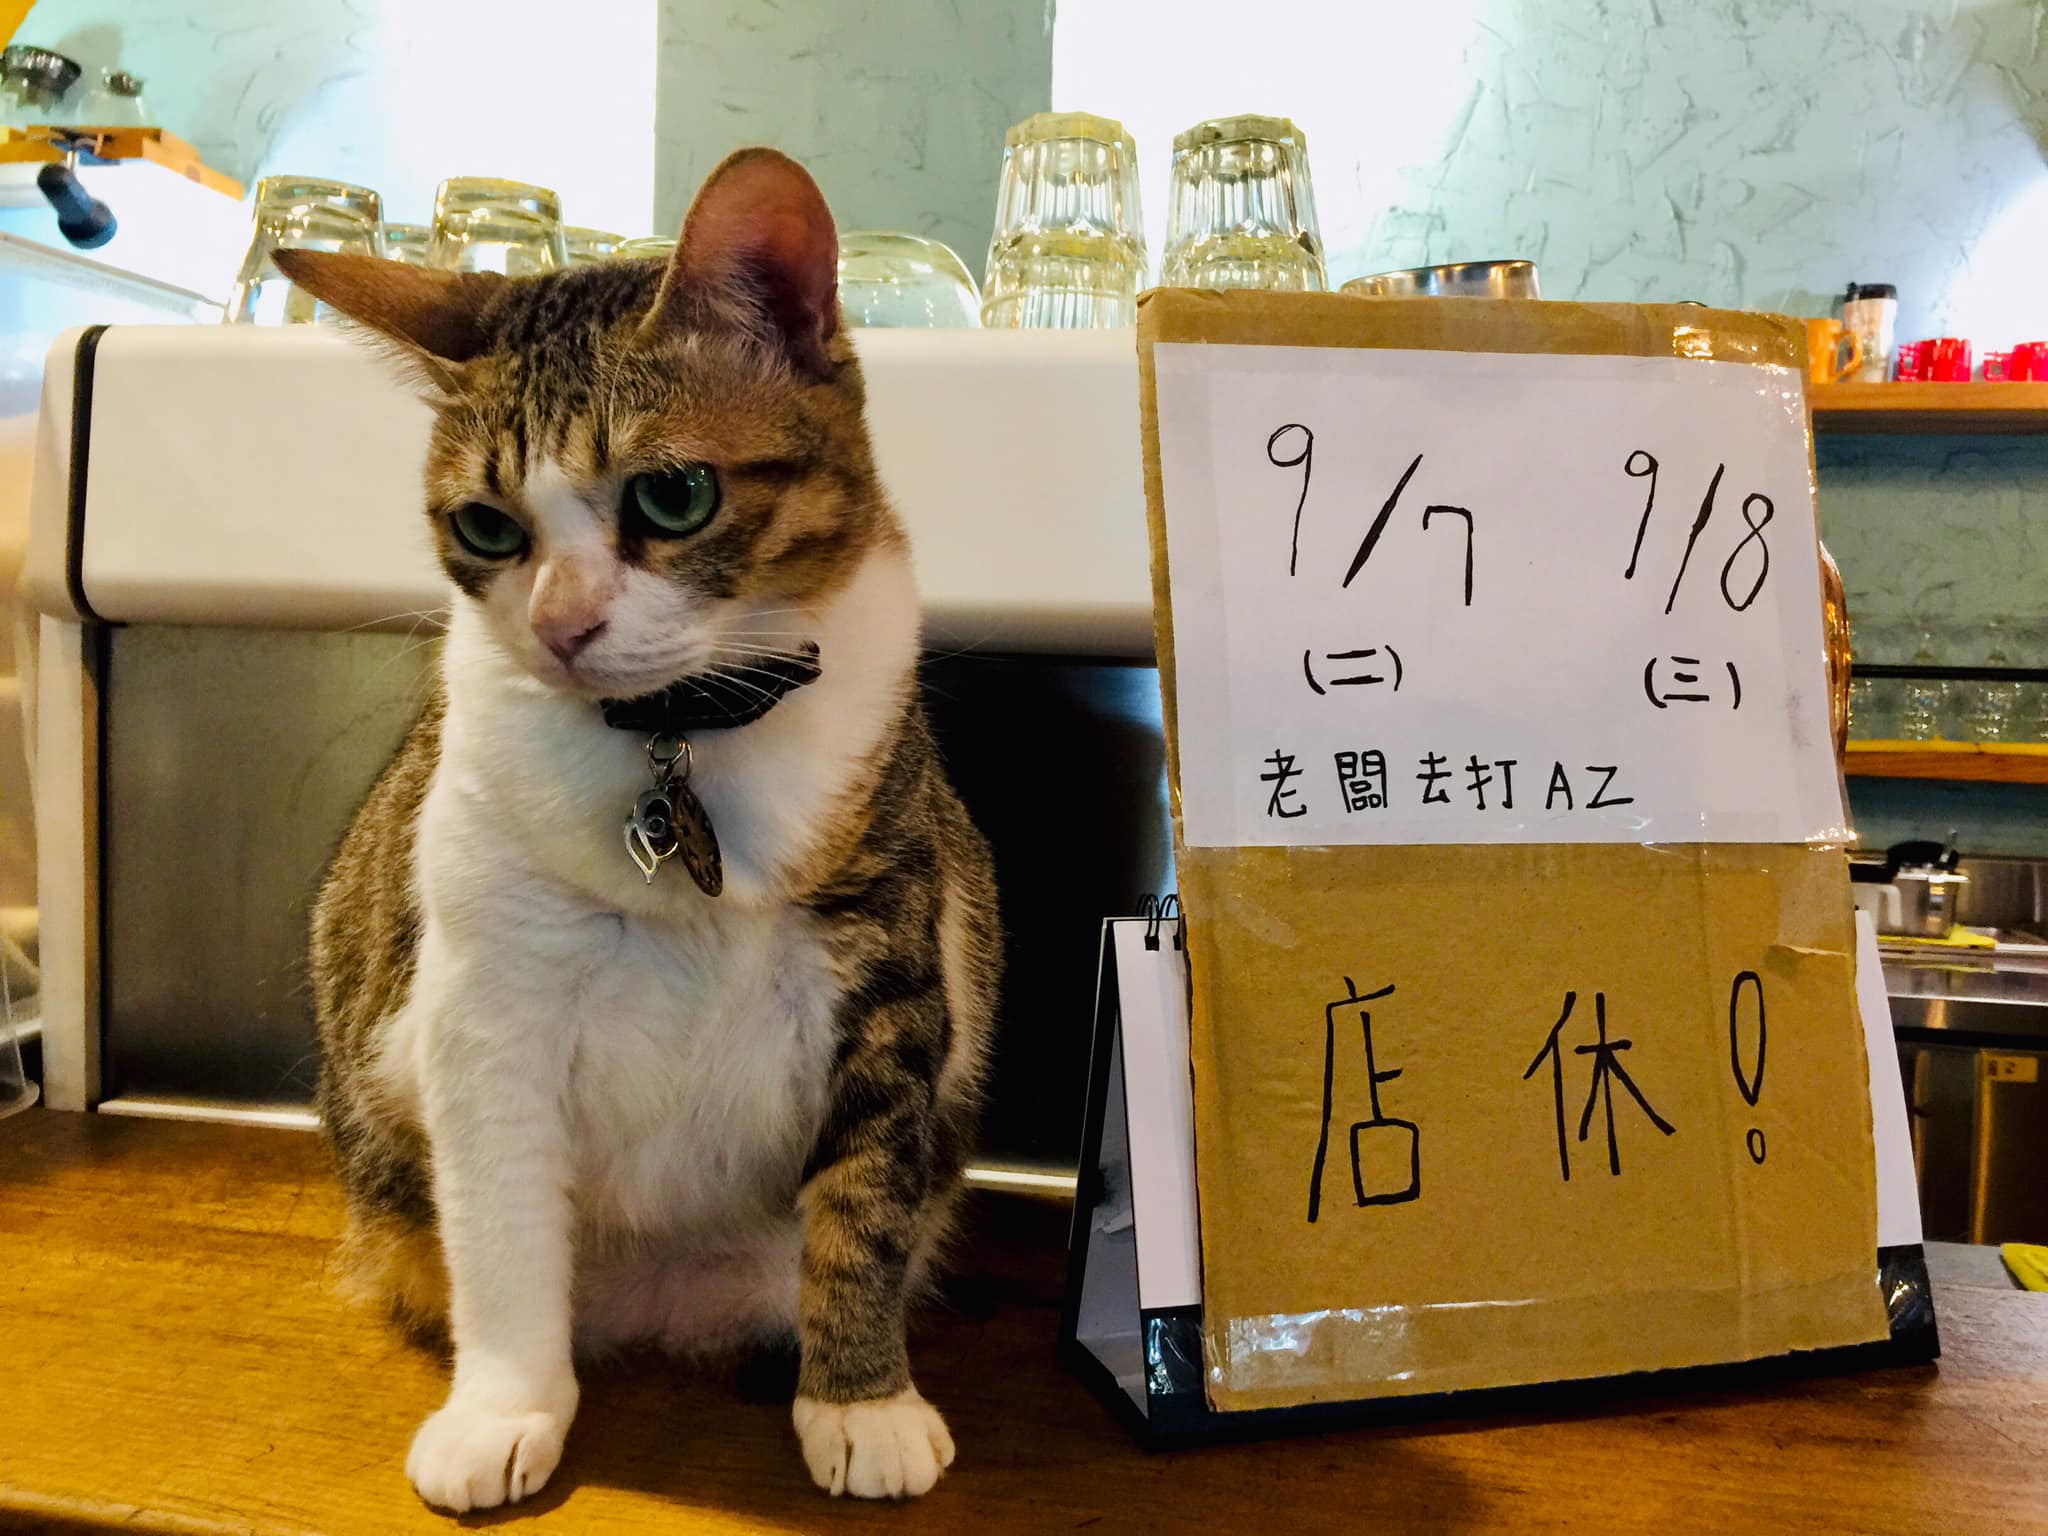 9/7 9/8
(二) (三)
老闆去打AZ
店休!